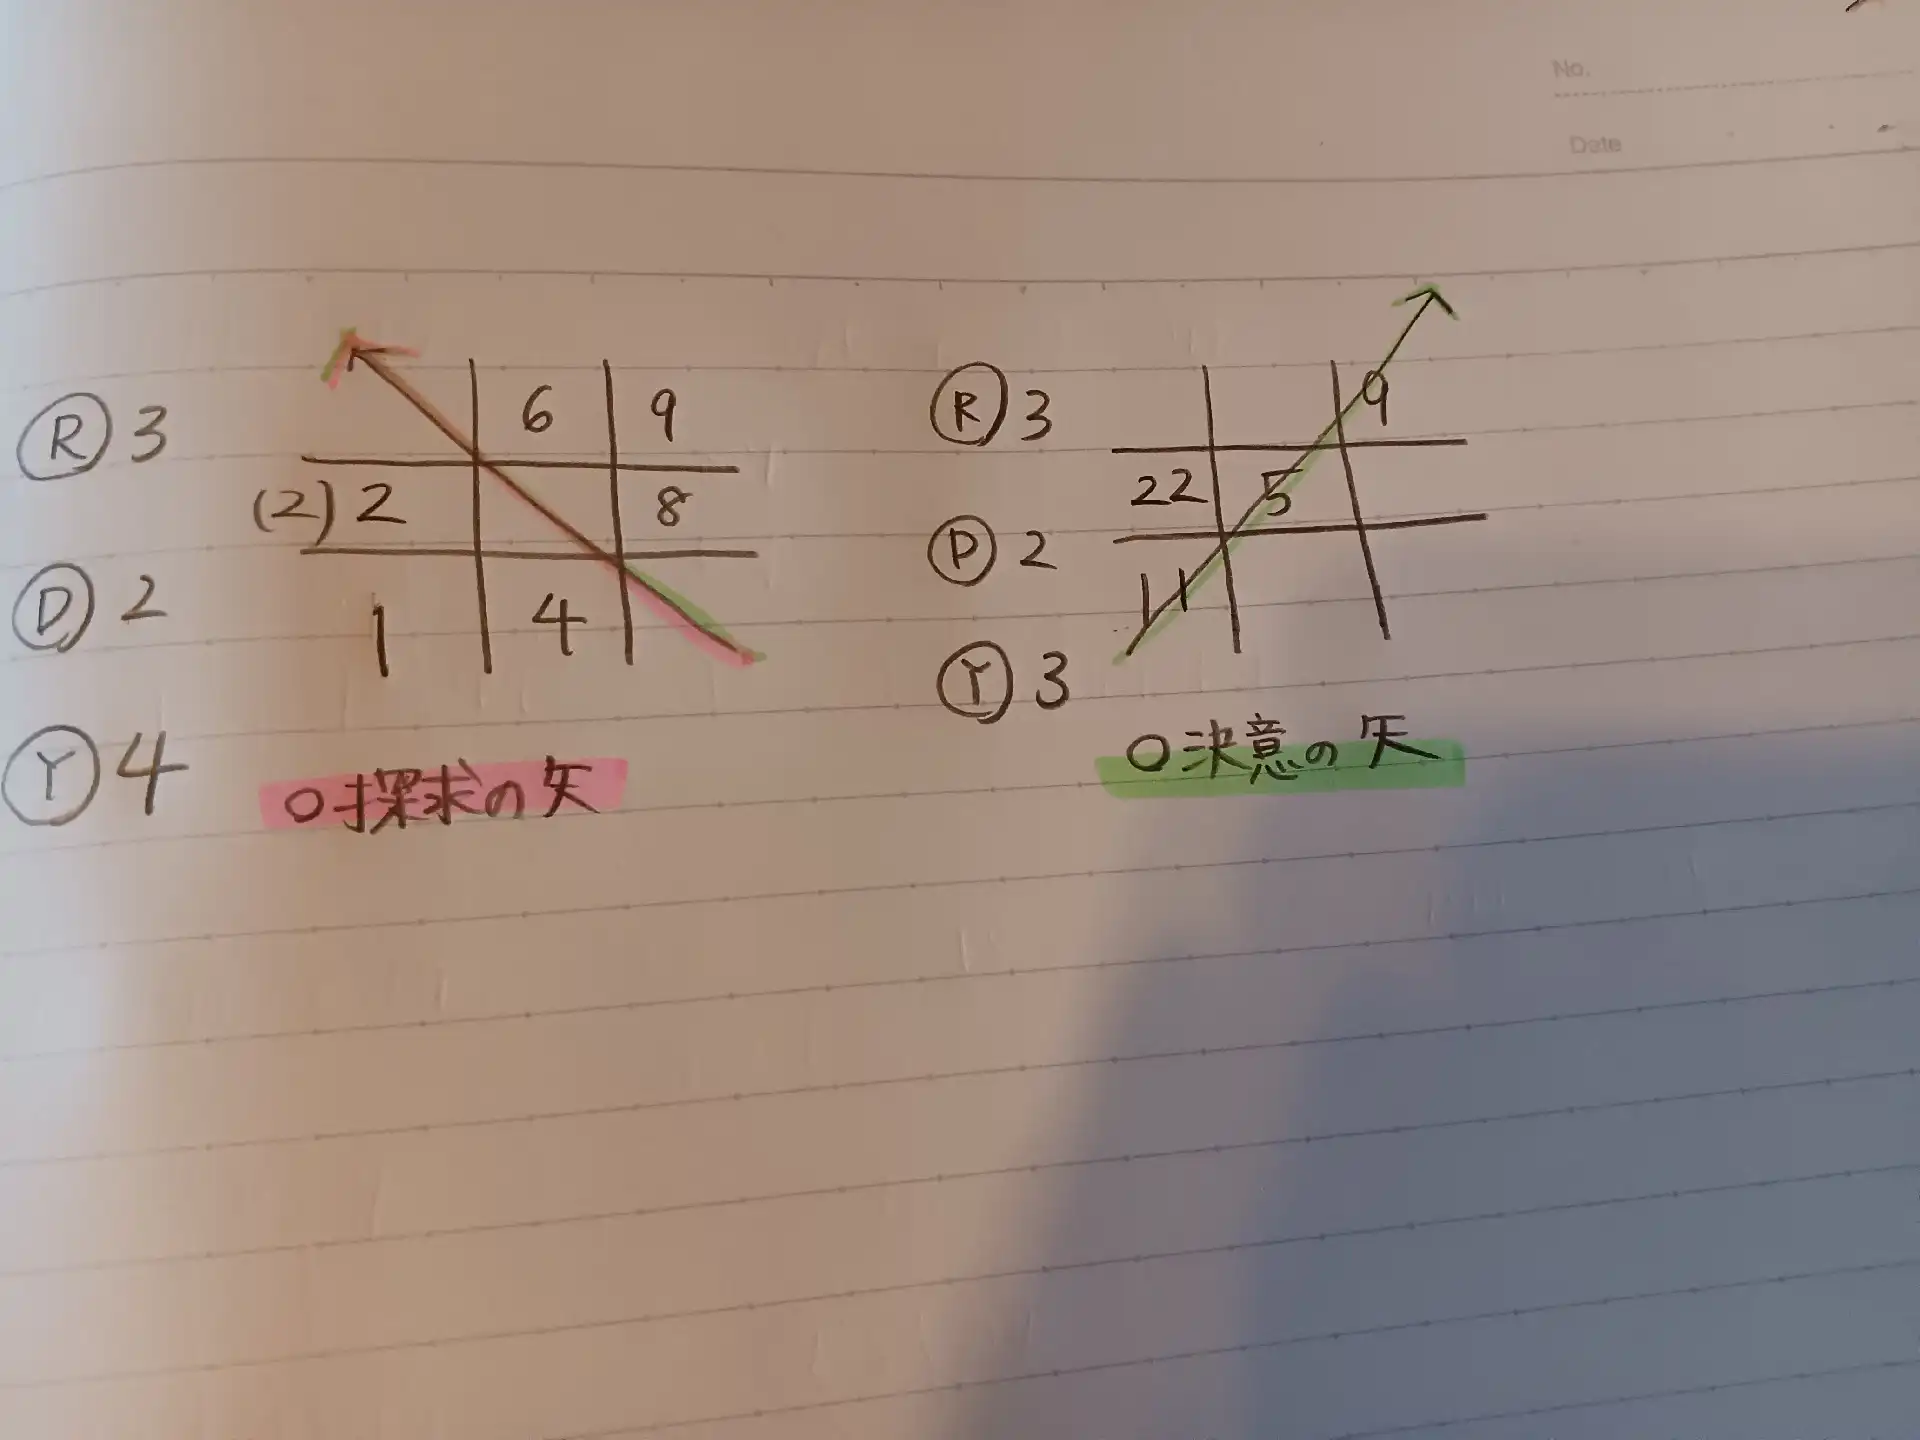 No.
Date
Ⓡ 3
6 9
(2) 2 8
Ⓓ 2
1 4
Ⓨ 4
○探求の矢
Ⓡ 3
9
22 5
Ⓟ 2
11
Ⓨ 3
○決意の矢